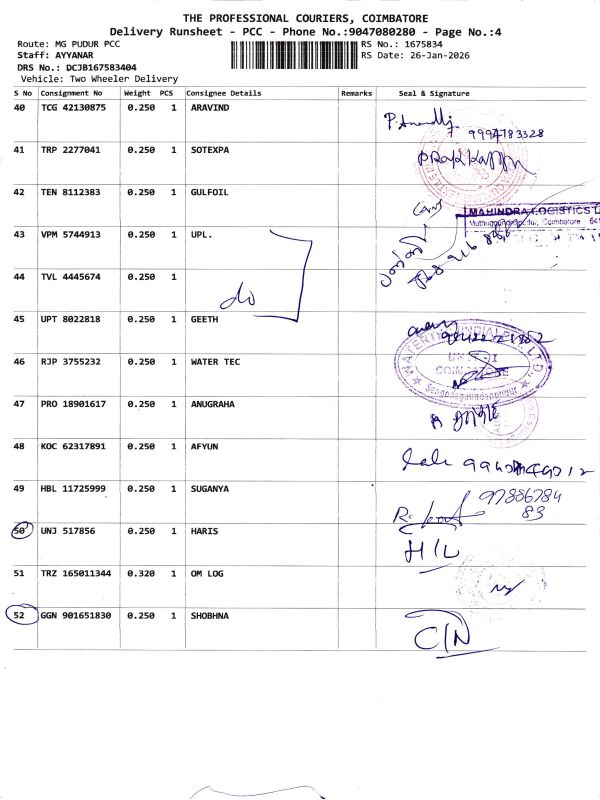 THE PROFESSIONAL COURIERS, COIMBATORE
Delivery Runsheet - PCC - Phone No.:9047080280 - Page No.:4
Route: MG PUDUR PCC RS No.: 1675834
Staff: AYYANAR RS Date: 26-Jan-2026
DRS No.: DCJB167583404
Vehicle: Two Wheeler Delivery
S No Consignment No Weight PCS Consignee Details Remarks Seal & Signature
40 TCG 42130875 0.250 1 ARAVIND
9994783328
41 TRP 2277041 0.250 1 SOTEXPA
42 TEN 8112383 0.250 1 GULFOIL
MAHINDRA LOGISTICS
Coimbatore
43 VPM 5744913 0.250 1 UPL.
44 TVL 4445674 0.250 1
do
45 UPT 8022818 0.250 1 GEETH
46 RJP 3755232 0.250 1 WATER TEC
47 PRO 18901617 0.250 1 ANUGRAHA
48 KOC 62317891 0.250 1 AFYUN
49 HBL 11725999 0.250 1 SUGANYA
97886784
83
50 UNJ 517856 0.250 1 HARIS
H/L
51 TRZ 165011344 0.320 1 OM LOG
52 GGN 901651830 0.250 1 SHOBHNA
C/N